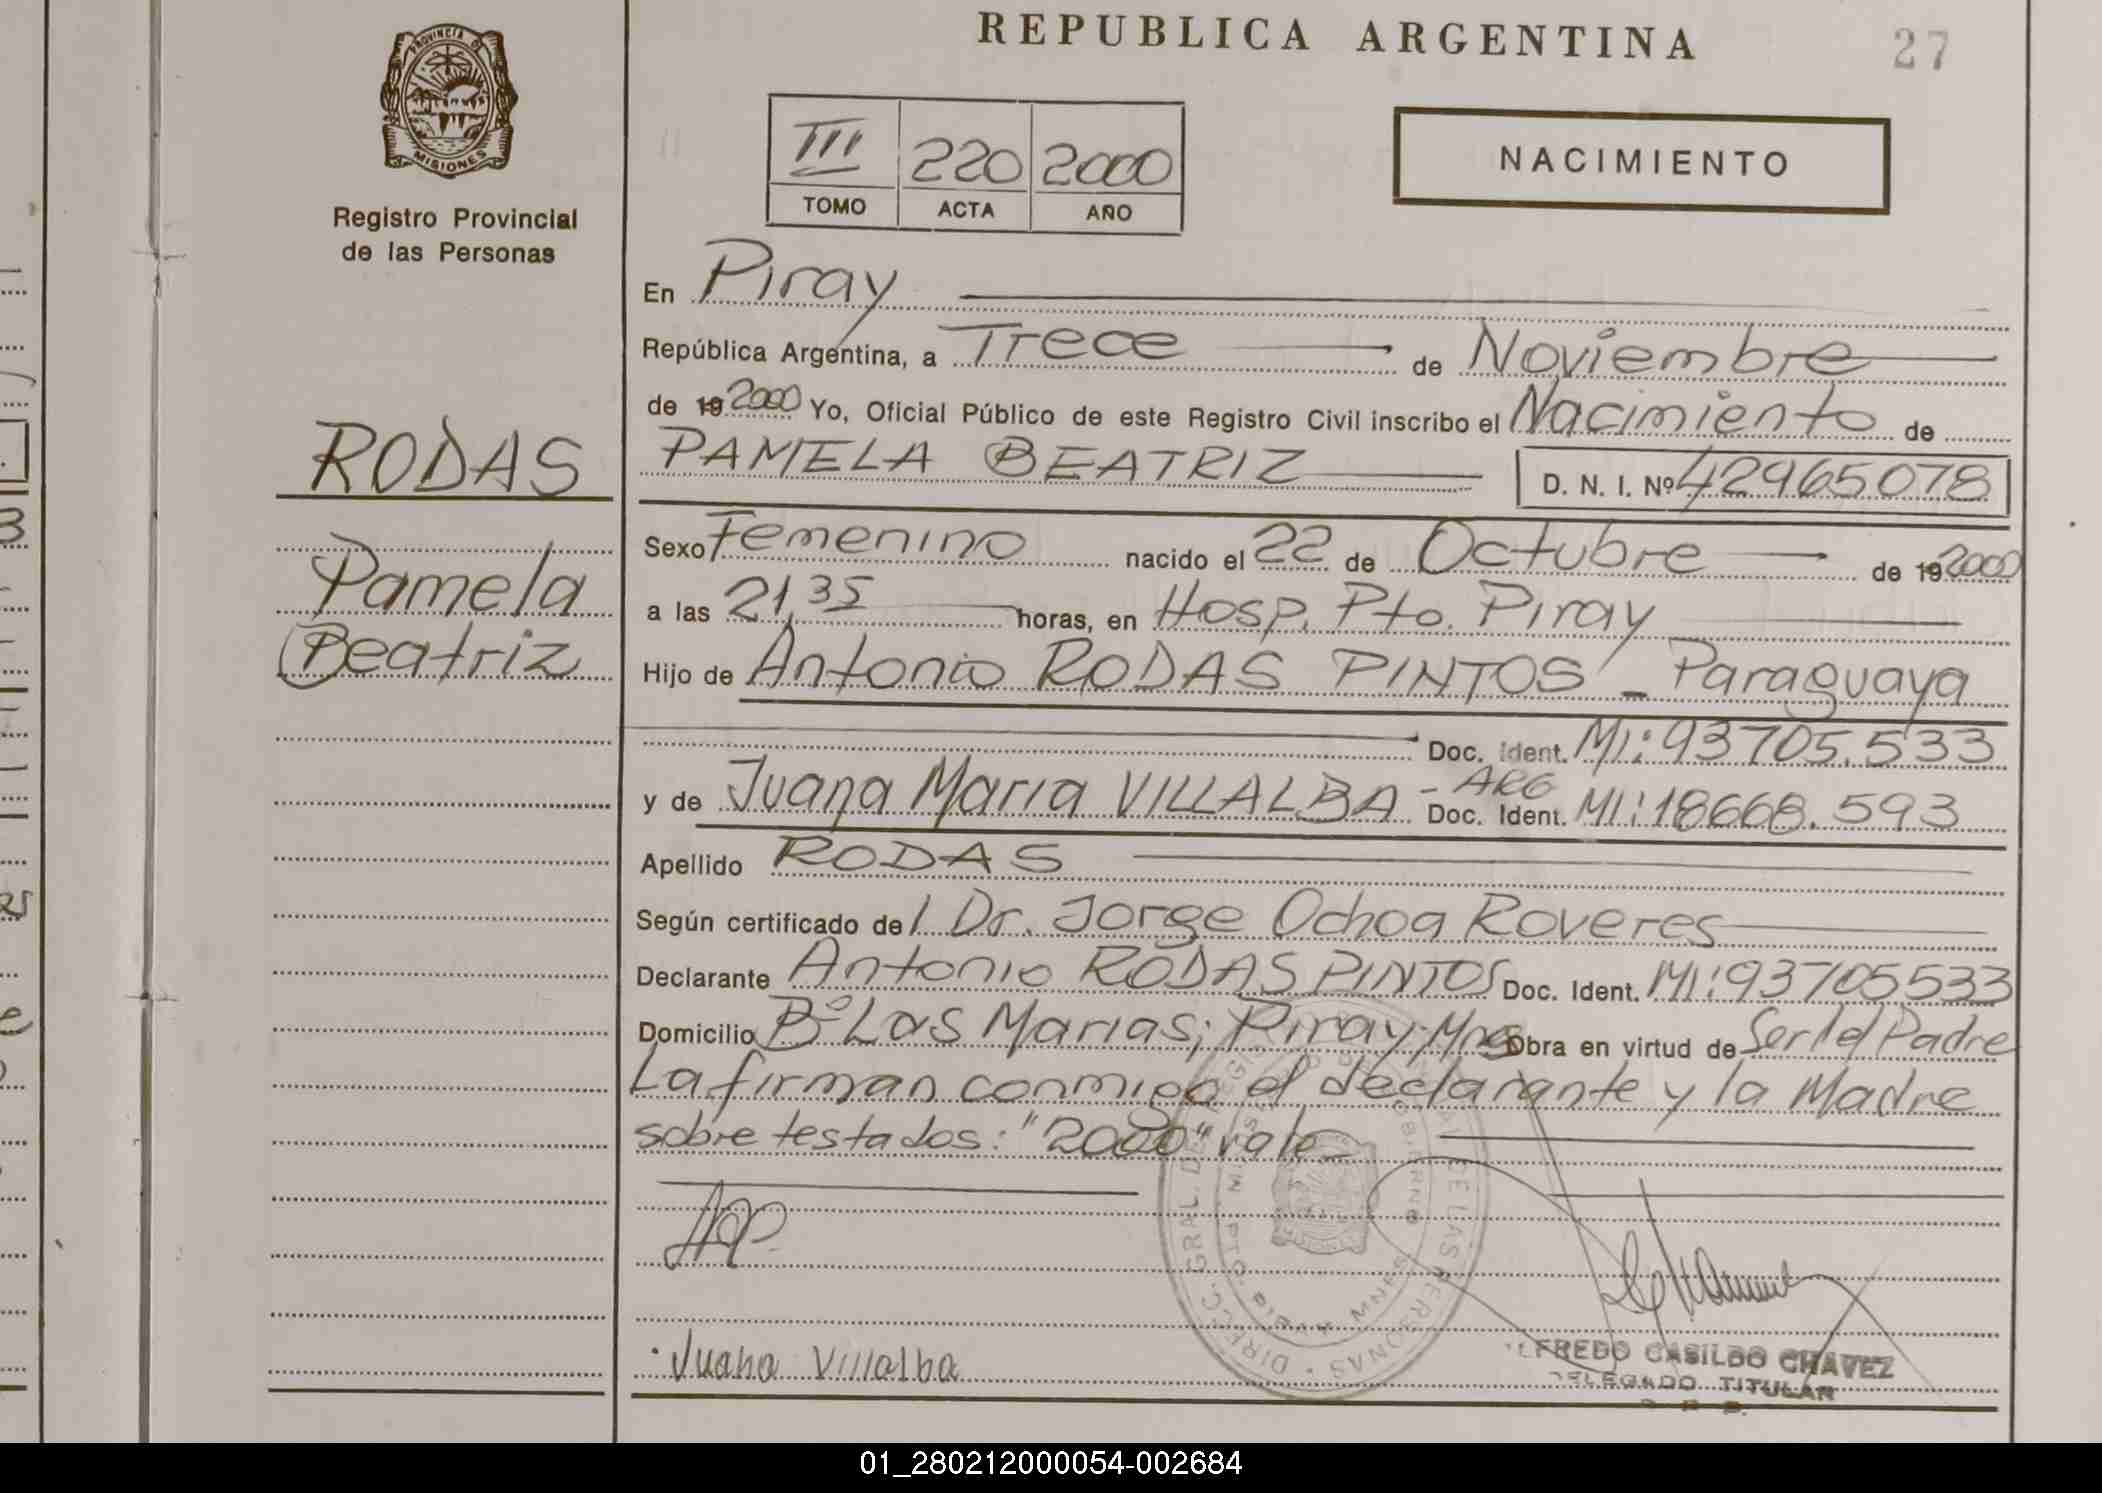 REPUBLICA ARGENTINA
27
PROVINCIA DE
MISIONES
Registro Provincial
de las Personas
III 220 2000
TOMO ACTA AÑO
NACIMIENTO
En Piray
República Argentina, a Trece de Noviembre
de 19 2000 Yo, Oficial Público de este Registro Civil inscribo el Nacimiento de
RODAS
PAMELA BEATRIZ D. N. I. Nº 42965078
Sexo Femenino nacido el 22 de Octubre de 19 2000
Pamela
a las 21,35 horas, en Hosp. Pto. Piray
Beatriz
Hijo de Antonio RODAS PINTOS - Paraguaya
Doc. Ident. MI: 93705.533
y de Juana Maria VILLALBA - ARG Doc. Ident. MI: 18668.593
Apellido RODAS
Según certificado de l Dr. Jorge Ochoa Roveres
Declarante Antonio RODAS PINTOS Doc. Ident. MI: 93705533
Domicilio Bº Las Marias; Piray; Mnes Obra en virtud de Ser el Padre
La firman conmigo el declarante y la Madre
sobre testados: "2000" vale
Juana Villalba
ALFREDO CASILDO CHAVEZ
DELEGADO TITULAR
01_280212000054-002684